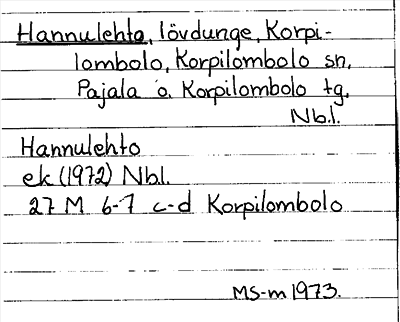 Hannulehto, lövdunge, Korpi-
lombolo, Korpilombolo sn,
Pajala o. Korpilombolo tg.
Nb.l.
Hannulehto
ek (1972) Nbl.
27 M 6-7 c-d Korpilombolo
MS-m 1973.